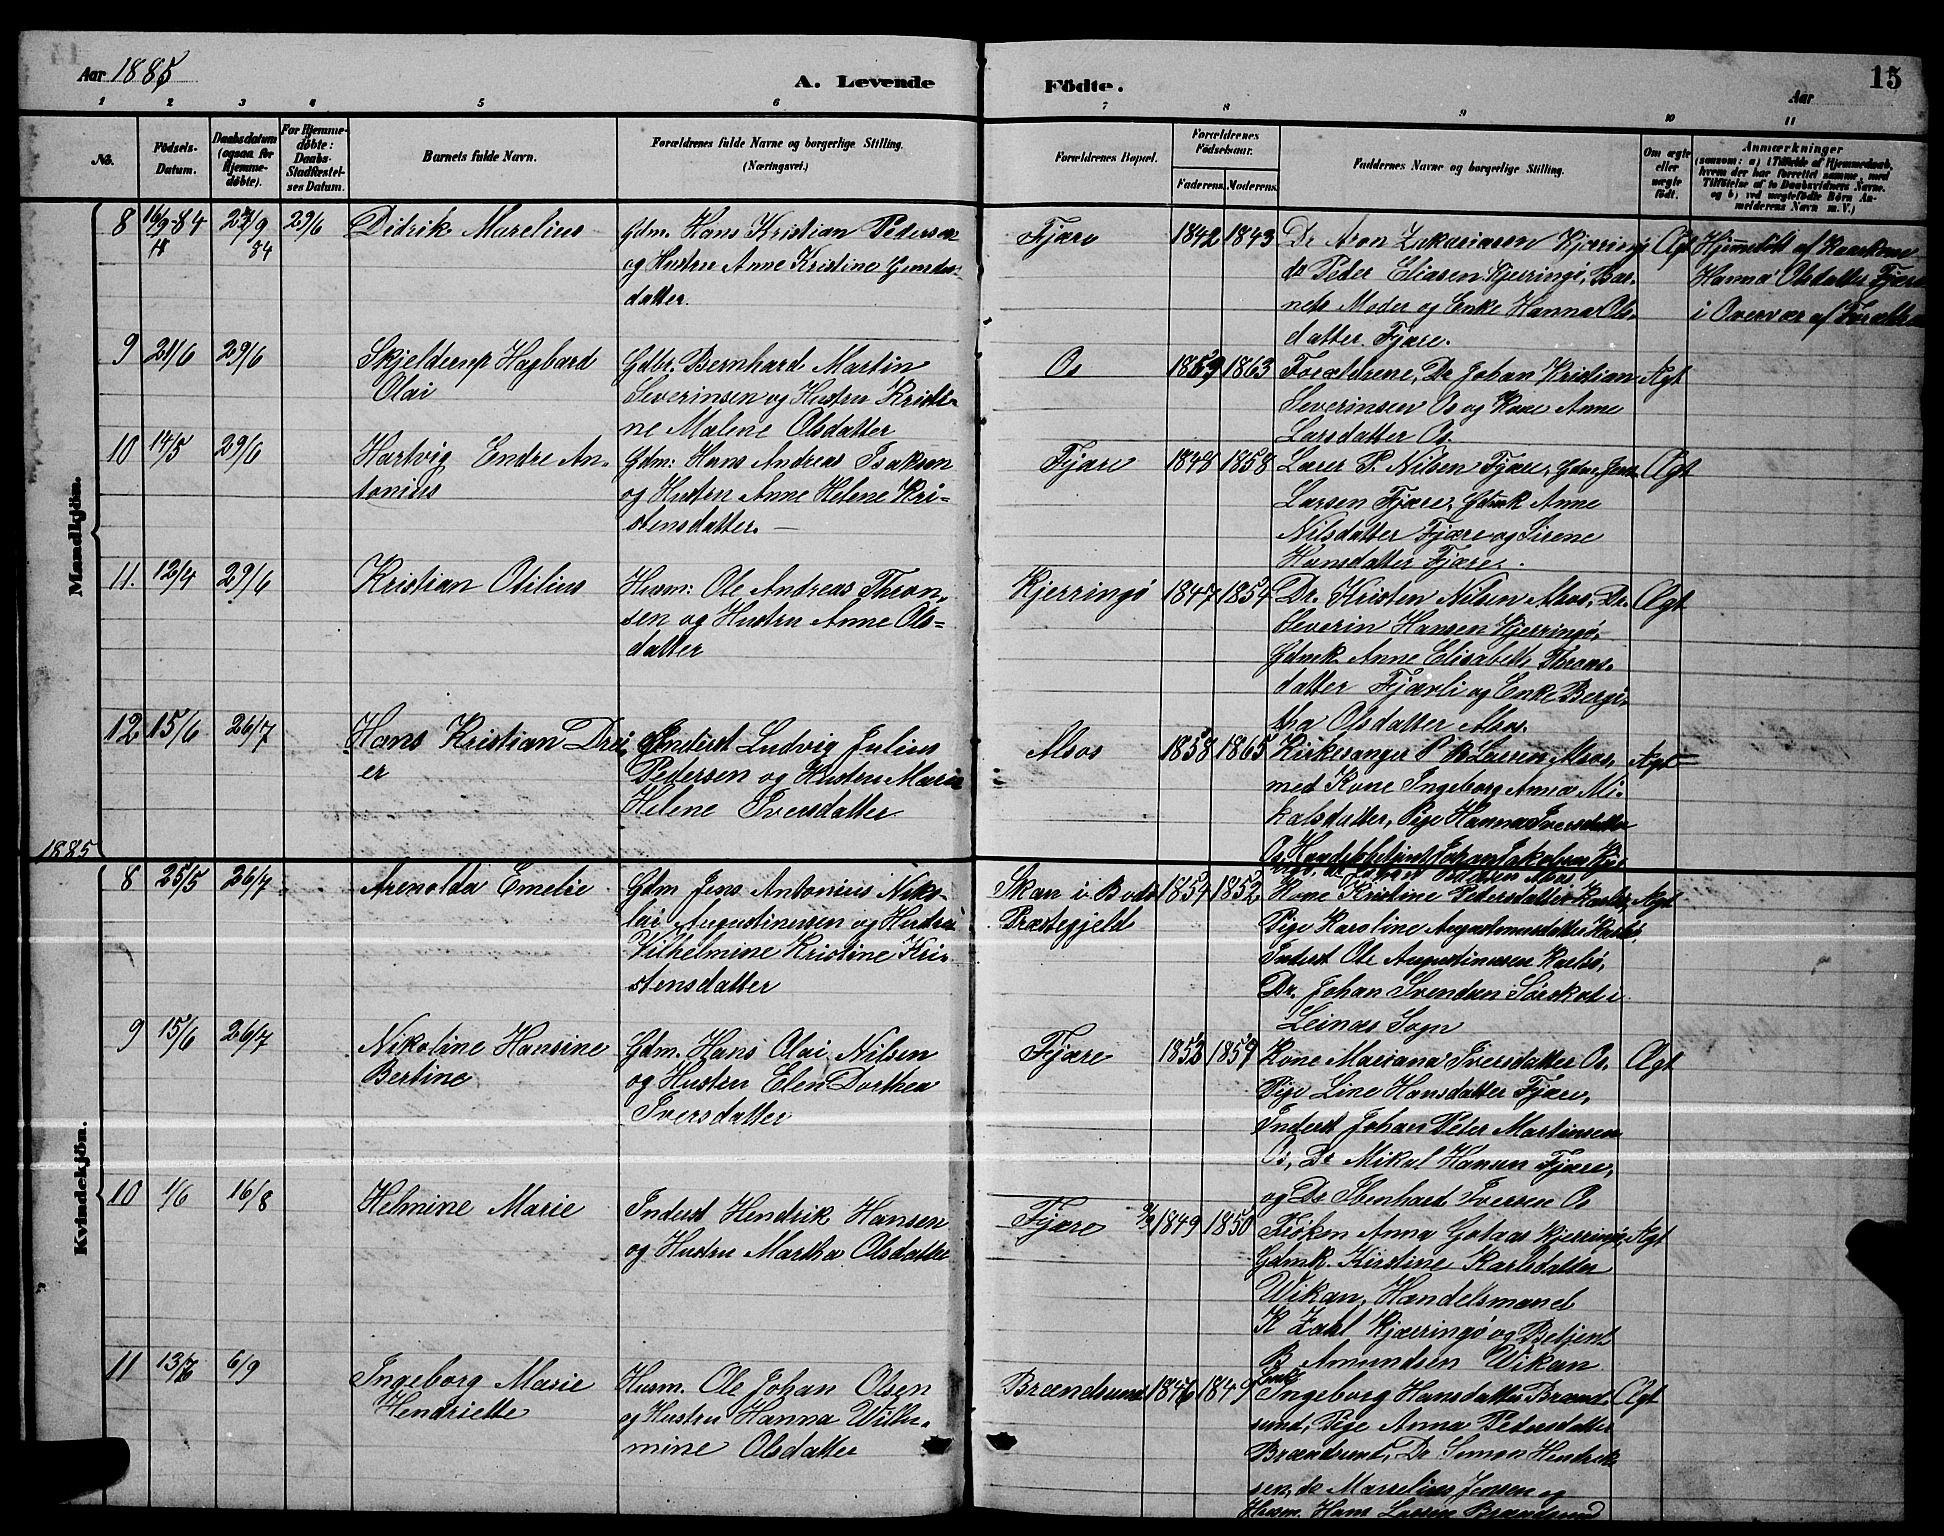 Aar 1885
A. Levende
Födte.
Aar
15
1 2 3 4 5 6 7 8 9 10 11
No.
Födsels-
Datum.
Daabsdatum
(ogsaa for
Hjemme-
døbte).
For Hjemme-
døbte:
Daabs-
Stadfæstel-
ses Datum.
Barnets fulde Navn.
Forældrenes fulde Navne og borgerlige Stilling.
(Næringsvei.)
Forældrenes Bopæl.
Forældrenes
Födselsaar.
Faderens. Moderens.
Faddernes Navne og borgerlige Stilling.
Om ægte
eller
uægte
födt.
Anmærkninger
(saasom: a) i Tilfælde af Hjemmedaab,
hvem der har forrettet samme, med
Tilföielse af to Daabsvidners Navne.
og b) ved uægtefödte Börn An-
melderens Navn m. V.)
Mandkjön.
8 16/9-84 29/6 Didrik Marelius
Gdm. Hans Kristian Pedersen
og Hustru Anne Kristine
datter.
Fjære 1842 1843
Dr Aron Zakariasen Kjerringö
do Peder Eliasen Kjerringö, Bar-
nets Moder og Enke Hanna Ols-
datter Fjære.
Ægt
Hjemmedöbt af
Hanna Olsdatter Fjære
i Overvær af
9 21/6 29/6 Skjelderup Hagbard
Olai
Gdbr. Bernhard Martin
Severinsen og Hustru Kristi-
ne Malene Olsdatter
Os 1863
Forældrene, Dr Johan Kristian
Severinsen Os og Kone Anne
Larsdatter Os.
Ægt
10 14/5 29/6 Hartvig Endre An-
tonius
Gdm: Hans Andreas Isaksen
og Hustru Anne Helene Kri-
stensdatter. —
Fjære 1848 1858
Lærer P. Nilsen Fjære, Gdm. Jens
Larsen Fjære, Gdmk Anne
Nilsdatter Fjære og Sirene
Hansdatter Fjære.
Ægt
11. 12/4 29/6 Kristian Otilius
Husm: Ole Andreas Thron-
sen og Hustru Anne Ols-
datter
Kjerringö 1847 1854
Dr. Kristen Nilsen Alsos, Dr.
Severin Hansen Kjerringö,
Gdmk. Anne Elisabeth Throns-
datter Fjærli og Enke Bergi-
tha Olsdatter Alsos.
Ægt
12 15/6 26/7 Hans Kristian Drei-
er
Inderst Ludvig Julius
Pedersen og Hustru Marie
Helene Iversdatter
Alsos 1858 1865
Kirkesanger P Larsen Alsos,
med Kone Ingeborg Anna Mi-
kalsdatter, Pige Hanna Iversdatter
Os, Handelsbetjent Johan Jakobsen
Ægt
1885
Kvindekjön.
8 25/5 26/7 Arnolda Emelie
Gdm Jens Antonius Niko-
lai Augustinussen og Hustru
Vilhelmine Kristine Kri-
stensdatter
Skau i Bodö
Præstegjeld
1854 1852
Kone Kristine Pedersdatter Karlsö,
Pige Karoline Augustinusdatter Karlsö,
Inderst Ole Augustinusen Karlsö,
Dr. Johan Svendsen Sörskot i
Leines Sogn
Ægt
9 15/6 26/7 Nikoline Hansine
Bertine
Gdm. Hans Olai Nilsen
og Hustru Elen Dorthea
Iversdatter
Fjære 1853 1859
Kone Mariana Iversdatter Os.
Pige Line Hansdatter Fjære,
Inderst Johan Peter Martinsen
Os, Dr Mikal Hansen Fjære,
og Dr Ibenhard Iversen Os
Ægt
10 1/6 16/8 Helmine Marie
Inderst Hendrik Hansen
og Hustru Martha Olsdatter
Fjære 1849 1850
Fröken Anna Gotaas Kjerringö,
Gdmk. Kirstine Karlsdatter
Wikan, Handelsmand
K Zahl Kjærringö og Betjent
B Amundsen Wikan
Ægt
11 13/7 6/9 Ingeborg Marie
Hendriette
Husm. Ole Johan Olsen
og Hustru Hanna Wilhe-
mine Olsdatter
Brændsund 1846 1849
Ingeborg Hansdatter Brænd-
sund, Pige Anna Pedersdatter
Brændsund, Dr Simon Hendrik-
sen, do Marselius Jensen og
Husm. Hans Larsen Brændsund
Ægt